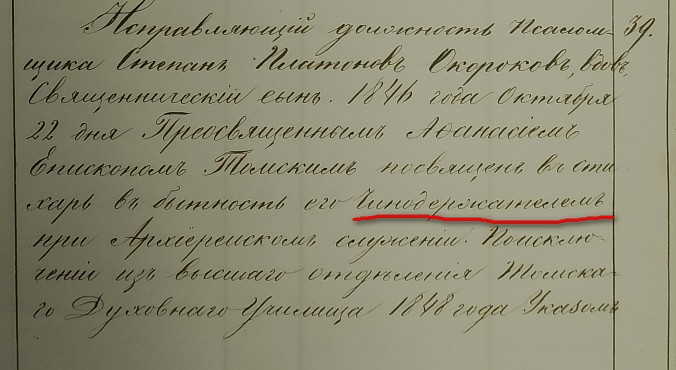 Исправляющій должность Псалом- 39.
щика Степанъ Платоновъ Окороковъ, вдовъ,
Священническій сынъ. 1846 года Октября
22 дня Преосвященнымъ Аѳанасіемъ
Епископомъ Томскимъ посвященъ въ сти-
харь въ бытность его Чинодержателемъ
при Архіерейскомъ служеніи. По исклю-
ченіи изъ высшаго отдѣленія Томска-
го Духовнаго Училища 1848 года Указомъ